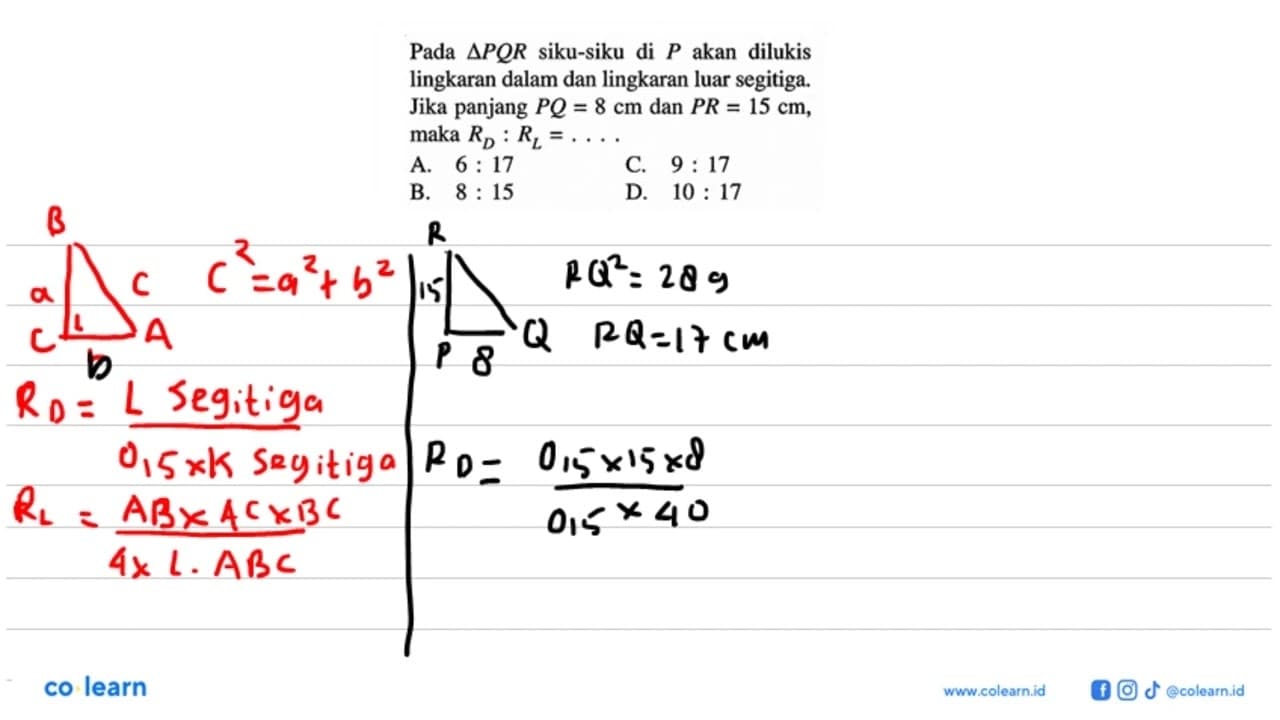 Pada ΔPQR siku-siku di P akan dilukis
lingkaran dalam dan lingkaran luar segitiga.
Jika panjang PQ = 8 cm dan PR = 15 cm,
maka R_D : R_L = . . . .
A. 6 : 17 C. 9 : 17
B. 8 : 15 D. 10 : 17
B
a c
C A
b
C² = a² + b²
R_D = L segitiga
0,5 x K segitiga
R_L = AB x AC x BC
4 x L. ABC
R
15
P 8 Q
RQ² = 289
RQ = 17 cm
R_D = 0,5 x 15 x 8
0,5 x 40
co learn
www.colearn.id
@colearn.id